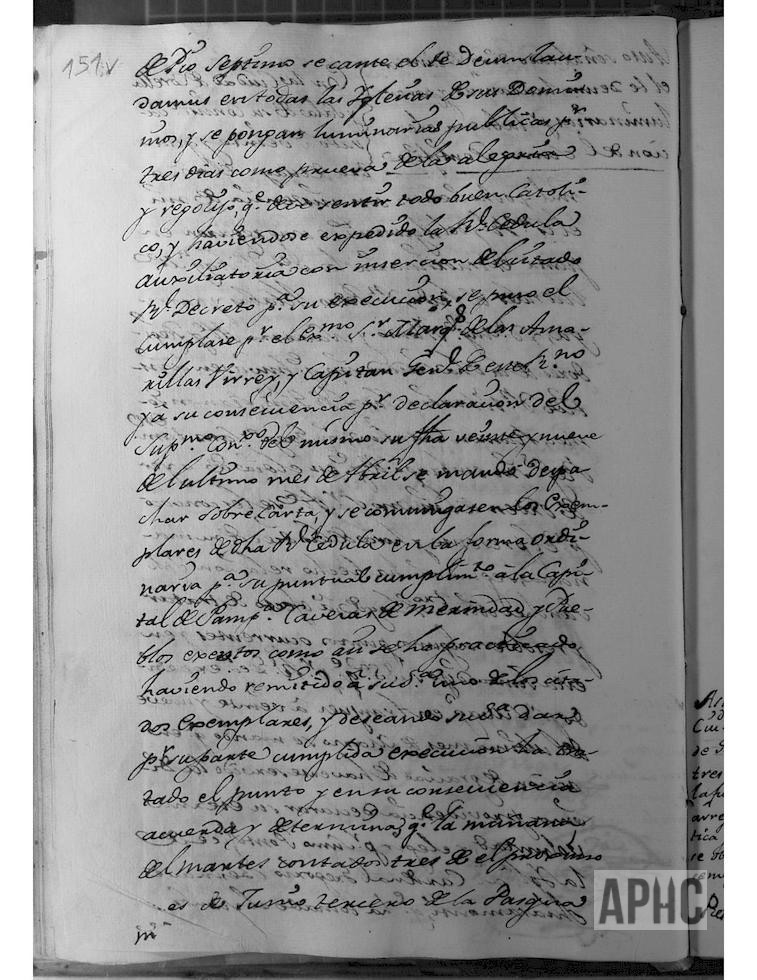 151.v
de Pio Septimo se cante el te Deum lau-
damus en todas las Yglesias de sus Domi-
nios, y se pongan luminarias publicas p.r
tres dias como prueva de la alegria
y regocijo, q.e deve sentir todo buen Catoli-
co, y haviendose expedido la R.l Cedula
auxiliatoria con insercion del citado
R.l Decreto p.a su execucion, se puso el
cumplase p.r el Ex.mo S.r Marq.s de las Ama-
rillas Virrey, y Capitan Gen.l de este R.no
y a su consecuencia p.r declaracion del
Sup.mo Con.o del mismo su fha veinte y nueve
del ultimo mes de Abril se mandó despa-
char sobre Carta, y se comunigasen los Exem-
plares de dha R.l Cedula en la forma ordi-
naria p.a su puntual cumplim.to à la Capi-
tal de Pamp.a Caveras de Merindad y Pue-
blos exentos como asi se ha practicado
haviendo remitido à su S.a uno de los cita-
dos Exemplares, y deseando su S.a dar
p.r su parte cumplida execucion ha tra-
tado el punto y en su consecuencia
acuerda y determina, q.e la mañana
del martes contados tres de el proximo
es de Junio tercero de la Pasqua
m
APHC